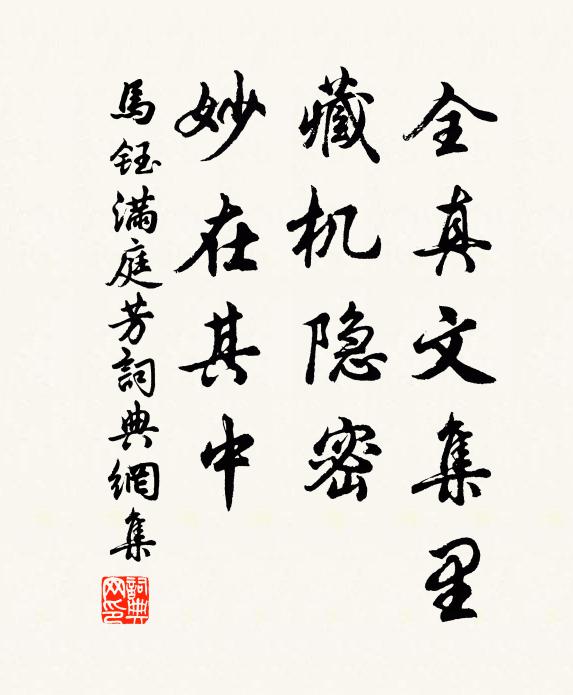 全真文集里
藏机隐密
妙在其中
馬鈺滿庭芳詞典網集
詞典网印